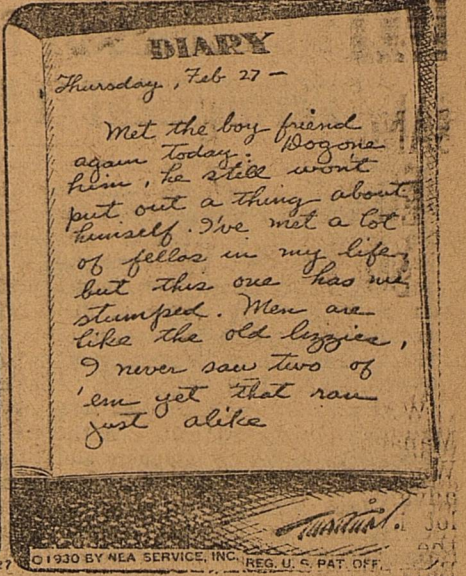 DIARY
Thursday, Feb 27 —
Met the boy friend
again today. Dogone
him, he still won't
put out a thing about
himself. I've met a lot
of fellas in my life,
but this one has me
stumped. Men are
like the old lizzies,
I never saw two of
'em yet that ran
just alike
©1930 BY NEA SERVICE, INC. REG. U. S. PAT. OFF.